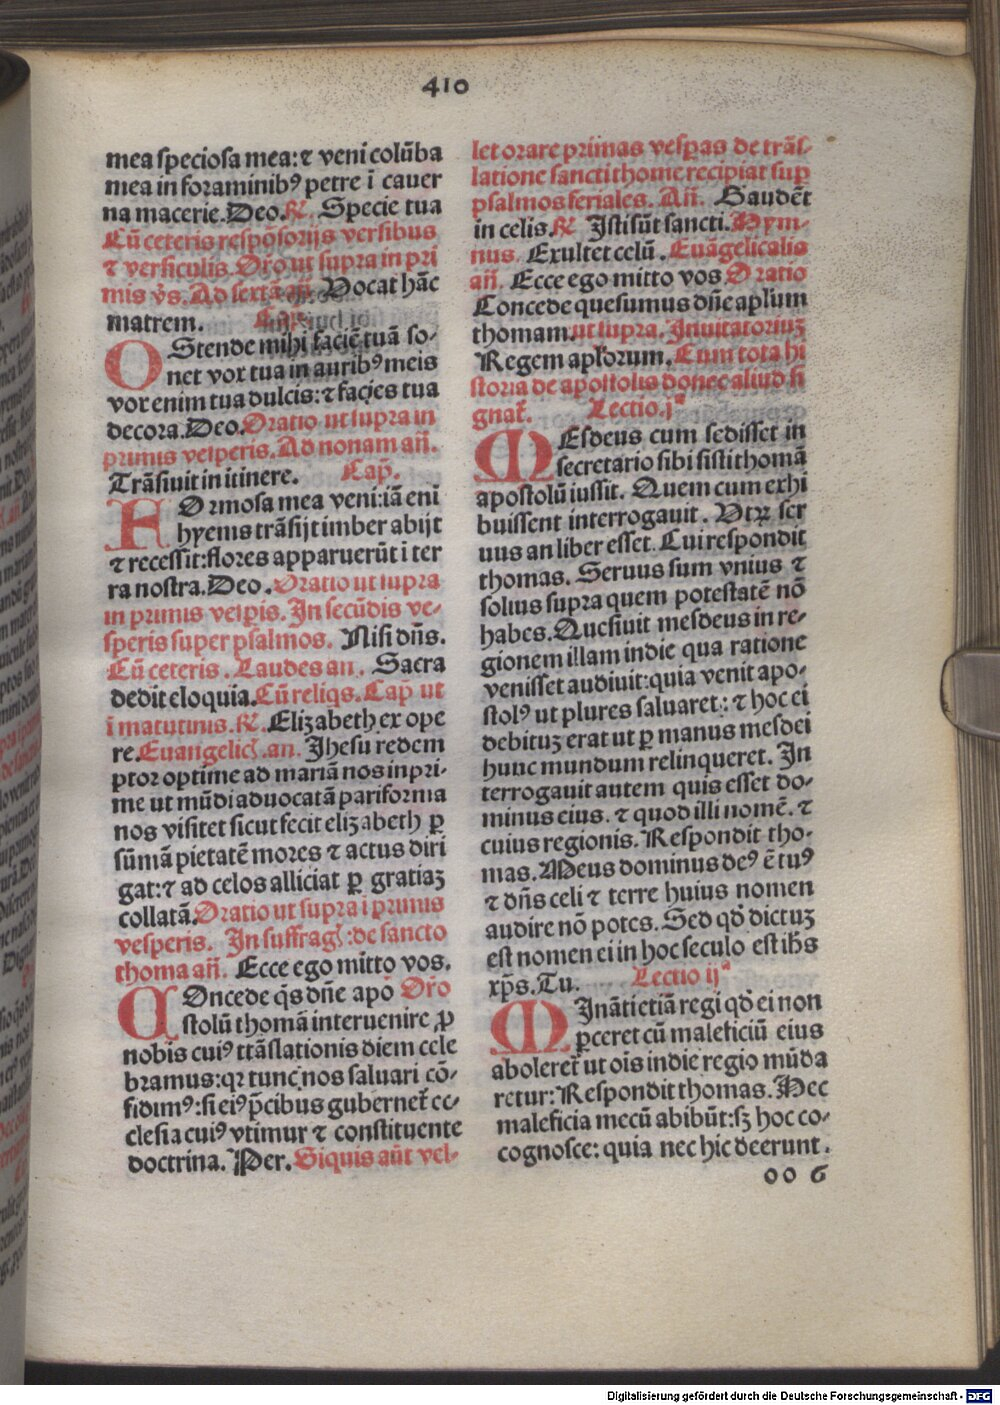 410
mea speciosa mea: ⁊ veni colūba
mea in foraminibꝰ petre ī cauer
na macerie. Deo. ℟. Specie tua
Cū ceteris respōsorijs versibus
⁊ versiculis. Oro ut supra in pri
mis v̄s. Ad sextā añ. Vocat hāc
matrem. Cap̄.
OStende mihi faciē tuā so⸗
net vox tua in auribꝰ meis
vox enim tua dulcis: ⁊ facies tua
decora. Deo. Oratio ut supra in
primis vesperis. Ad nonam añ.
Trāsiuit in itinere. Cap̄.
FOrmosa mea veni: iā eni
hyems trāsijt imber abijt
⁊ recessit: flores apparuerūt ī ter
ra nostra. Deo. Oratio ut supra
in primis vesp̄is. In secūdis ve⸗
speris super psalmos. Nisi dñs.
Cū ceteris. Laudes an. Sacra
dedit eloquia. Cū reliqs. Cap̄ ut
ī matutinis. ℟. Elizabeth ex ope
re. Euangelic̄. an. Jhesu redem
ptor optime ad mariā nos inpri⸗
me ut mūdi aduocatā pariforma
nos visitet sicut fecit elizabeth ꝑ
sūmā pietatē mores ⁊ actus diri
gat: ⁊ ad celos alliciat ꝑ gratiaꝫ
collatā. Oratio ut supra ī primis
vesperis. In suffraḡ: de sancto
thoma añ. Ecce ego mitto vos.
COncede q̄s dn̄e apo Oro
stolū thomā interuenire ꝓ
nobis cuiꝰ trāslationis diem cele
bramus: qꝛ tunc nos saluari cō⸗
fidimꝰ: si eiꝰ p̄cibus gubernet̄ ec⸗
clesia cuiꝰ vtimur ⁊ constituente
doctrina. Per. Si quis aūt vel⸗
let orare primas vesꝑas de trās⸗
latione sancti thome recipiat suꝑ
psalmos feriales. Añ. Gaudēt
in celis. ℟ Isti sūt sancti. Hym⸗
nus. Exultet celū. Euāgelicalis
añ. Ecce ego mitto vos Oratio
Concede quesumus dn̄e apl̄um
thomam. ut supra. Inuitatoriuꝫ
Regem apl̄orum. Cum tota hi
storia de apostolis donec aliud si
gnat̄. Lectio. jᵃ
MEsdeus cum sedisset in
secretario sibi sisti thomā
apostolū iussit. Quem cum exhi
buissent interrogauit. Vtꝝ ser
uus an liber esset. Cui respondit
thomas. Seruus sum vnius ⁊
solius supra quem potestatē nō
habes. Quesiuit mesdeus in re⸗
gionem illam indie qua ratione
venisset audiuit: quia venit apo⸗
stolꝰ ut plures saluaret: ⁊ hoc ei
debituꝫ erat ut ꝑ manus mesdei
hunc mundum relinqueret. In
terrogauit autem quis esset do⸗
minus eius. ⁊ quod illi nomē. ⁊
cuius regionis. Respondit tho⸗
mas. Meus dominus deꝰ ē tuꝰ
⁊ dn̄s celi ⁊ terre huius nomen
audire nō potes. Sed qd̄ dictuꝫ
est nomen ei in hoc seculo est ih̄s
xp̄s. Tu. Lectio ijᵃ
MInāti etiā regi qd̄ ei non
ꝑceret cū maleficiū eius
aboleret̄ ut oīs indie regio mūda
retur: Respondit thomas. Hec
maleficia mecū abibūt: sꝫ hoc co⸗
cognosce: quia nec hic deerunt.
oo 6
Digitalisierung gefördert durch die Deutsche Forschungsgemeinschaft - DFG